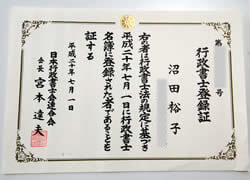 第　　　号
行政書士登録証
沼田裕子
右の者は行政書士法の規定に基づき
平成二十年七月一日に行政書士
名簿に登録された者であることを
証する
平成二十年七月一日
日本行政書士会連合会
会長 宮本達夫